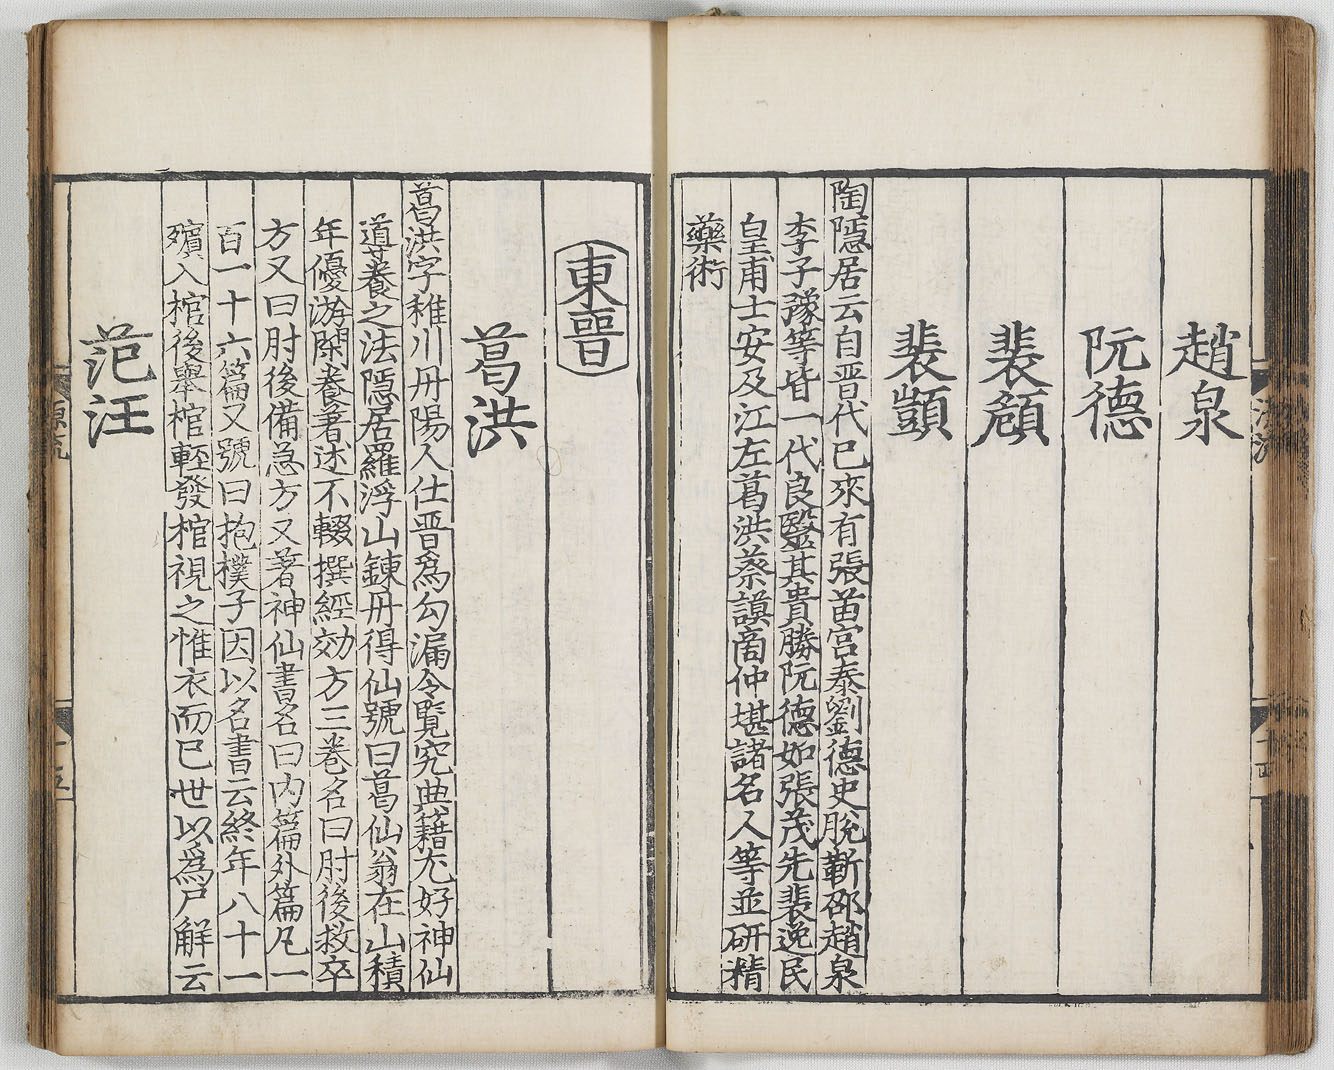 趙泉
阮德
裴頠
裴顗
陶隱居云自晋代已來有張苗宫泰劉德史脫靳邵趙泉
李子豫等皆一代良毉其貴勝阮德如張茂先裴逸民
皇甫士安及江左葛洪蔡謨啇仲堪諸名人等並研精
藥術
東晉
葛洪
葛洪字稚川丹陽人仕晋爲勾漏令覽究典籍尤好神仙
道養之法隱居羅浮山鍊丹得仙號曰葛仙翁在山積
年優游閑養著述不輟撰經効方三卷名曰肘後救卒
方又曰肘後備急方又著神仙書名曰内篇外篇凡一
百一十六篇又號曰抱樸子因以名書云終年八十一
殯入棺後舉棺輕發棺視之惟衣而已世以爲尸解云
范汪